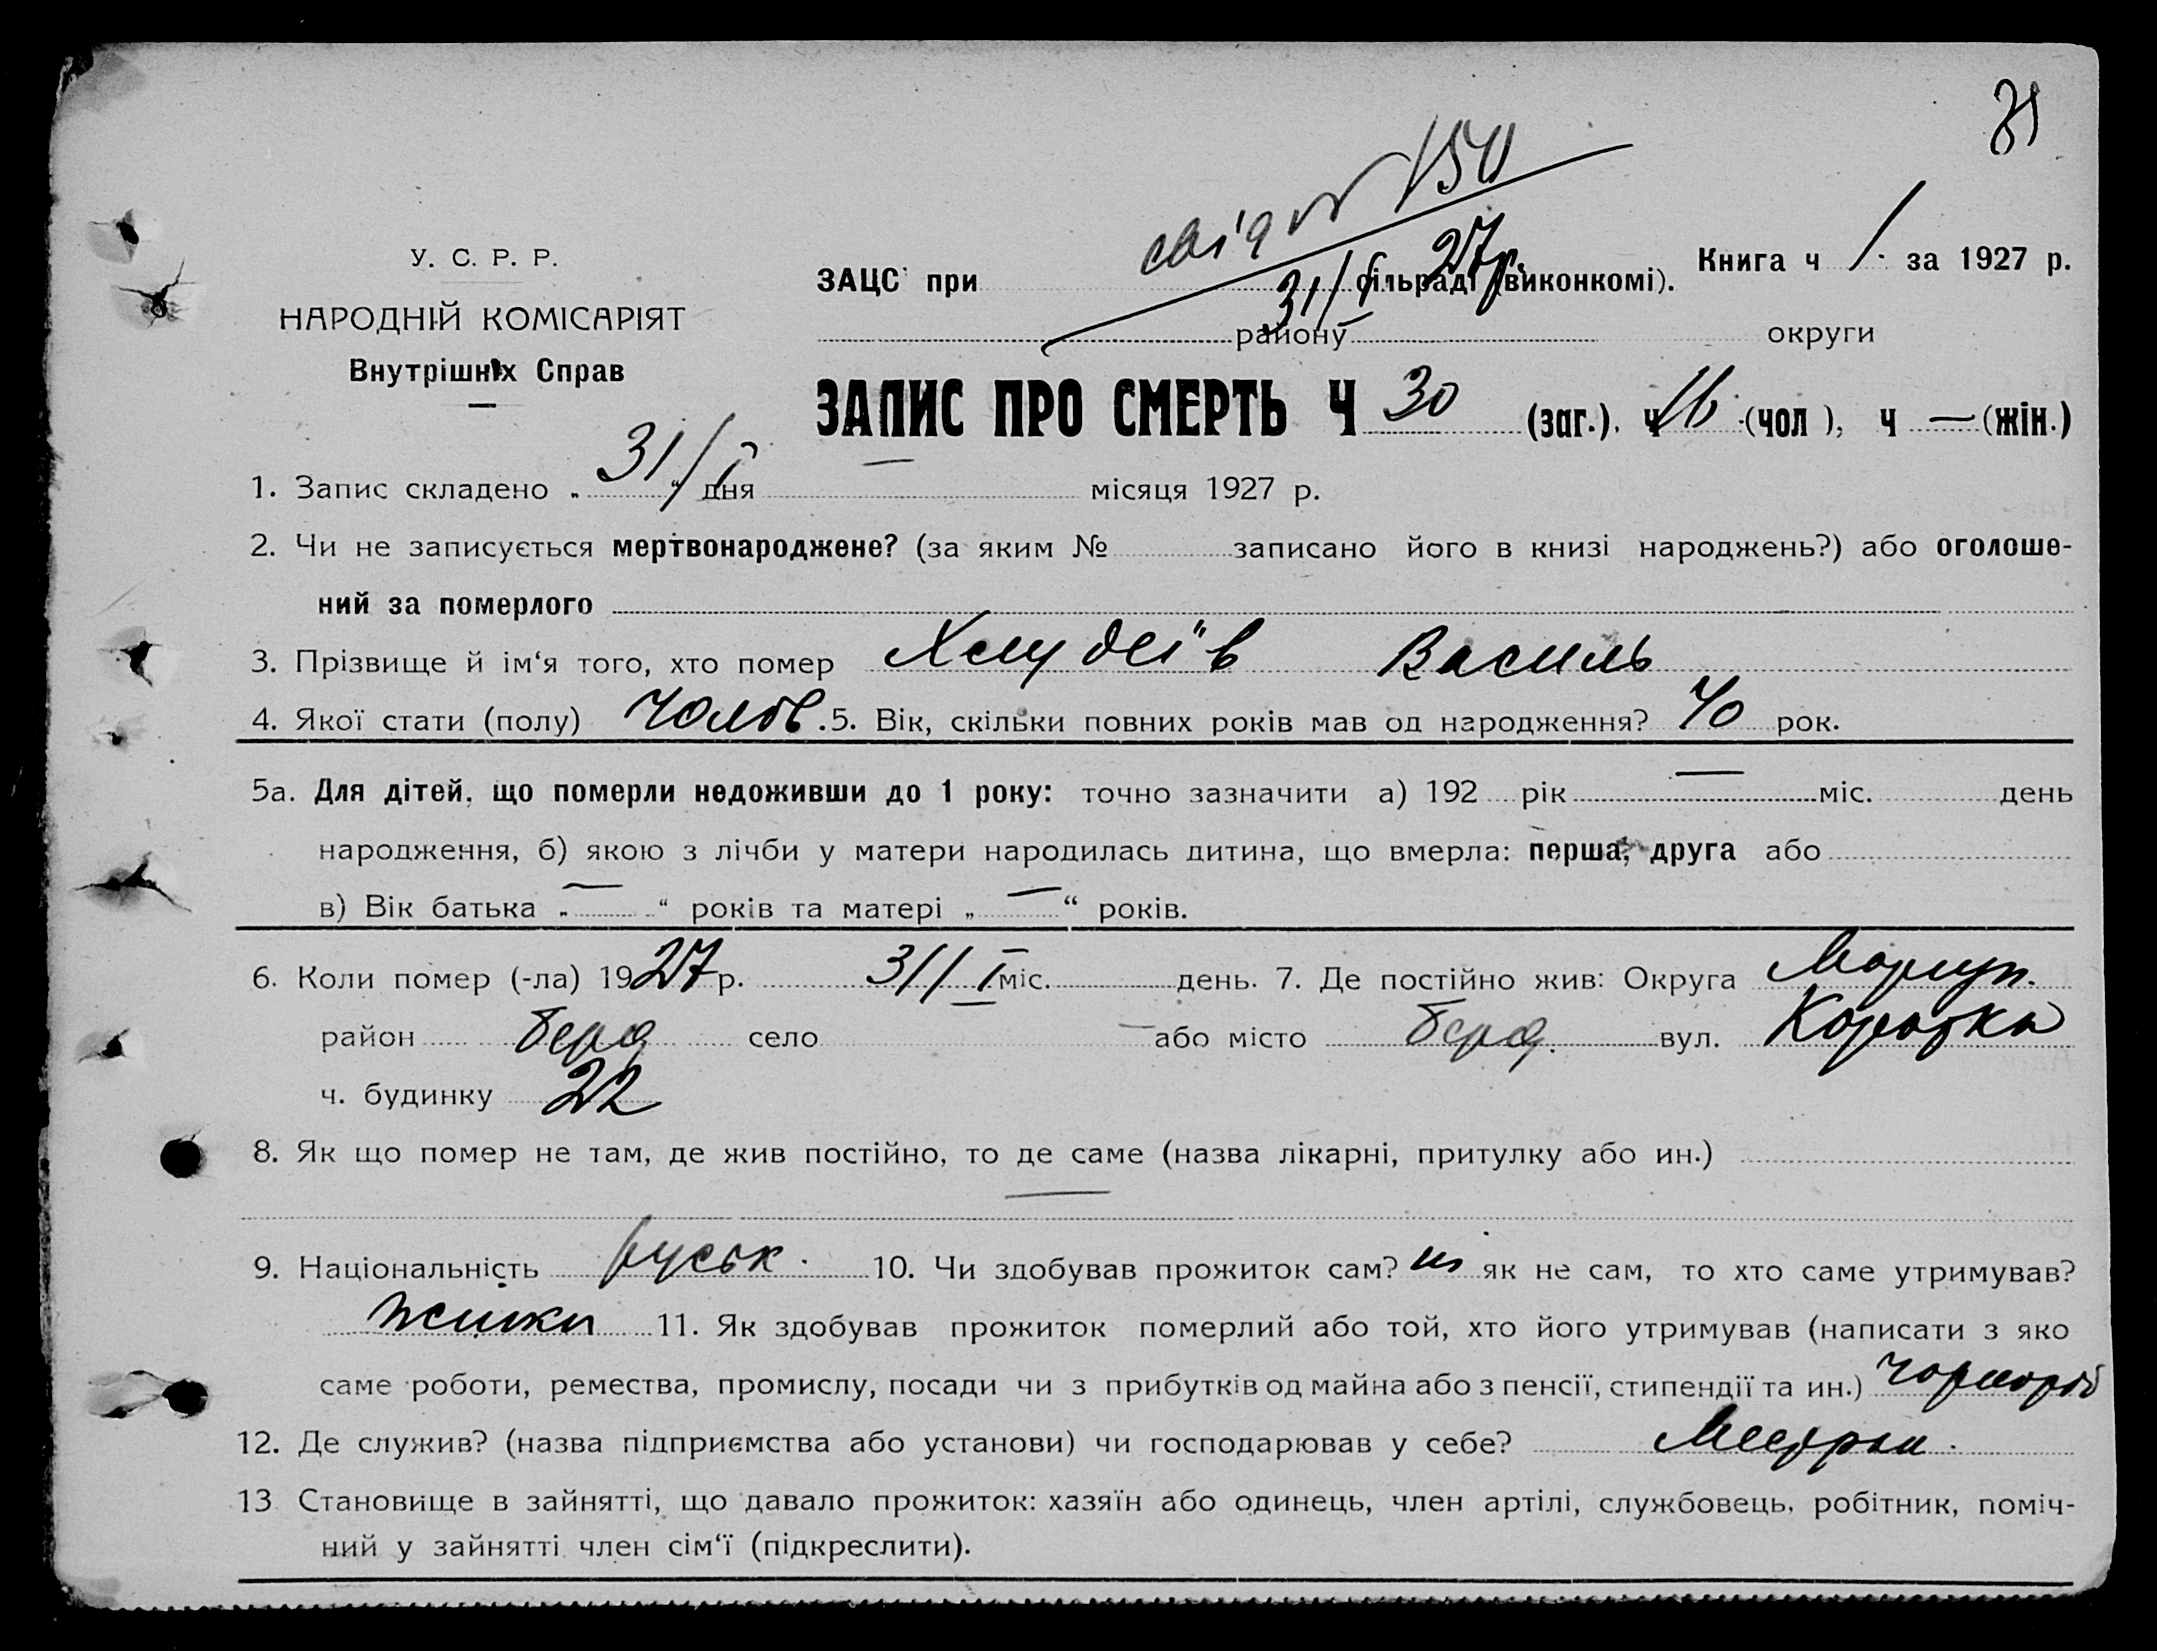 31
свід № 150
31/I 27 р.
У. С. Р. Р.
НАРОДНІЙ КОМІСАРІЯТ
Внутрішніх Справ
ЗАЦС при сільраді (виконкомі). Книга ч 1. за 1927 р.
району округи
ЗАПИС ПРО СМЕРТЬ Ч 30 (заг.). ч 16 (чол), ч — (жін.)
1. Запис складено „31/I“ дня — місяця 1927 р.
2. Чи не записується мертвонароджене? (за яким № записано його в книзі народжень?) або оголоше-
ний за померлого
3. Прізвище й ім‘я того, хто помер Василь
4. Якої стати (полу) Чолов. 5. Вік, скільки повних років мав од народження? 40 рок.
5а. Для дітей, що померли недоживши до 1 року: точно зазначити а) 192 рік — міс. день
народження, б) якою з лічби у матери народилась дитина, що вмерла: перша, друга або
в) Вік батька „—“ років та матері „—“ років.
6. Коли помер (-ла) 1927 р. 31/I міс. день. 7. Де постійно жив: Округа Маріуп.
район Берд село — або місто Берд. вул. Коротка
ч. будинку 22
8. Як що помер не там, де жив постійно, то де саме (назва лікарні, притулку або ин.)
—
9. Національність руськ. 10. Чи здобував прожиток сам? ні як не сам, то хто саме утримував?
жінки 11. Як здобував прожиток померлий або той, хто його утримував (написати з яко
саме роботи, ремества, промислу, посади чи з прибутків од майна або з пенсії, стипендії та ин.) чорнороб
12. Де служив? (назва підприємства або установи) чи господарював у себе?
13 Становище в зайнятті, що давало прожиток: хазяїн або одинець, член артілі, службовець, робітник, поміч-
ний у зайнятті член сім‘ї (підкреслити).